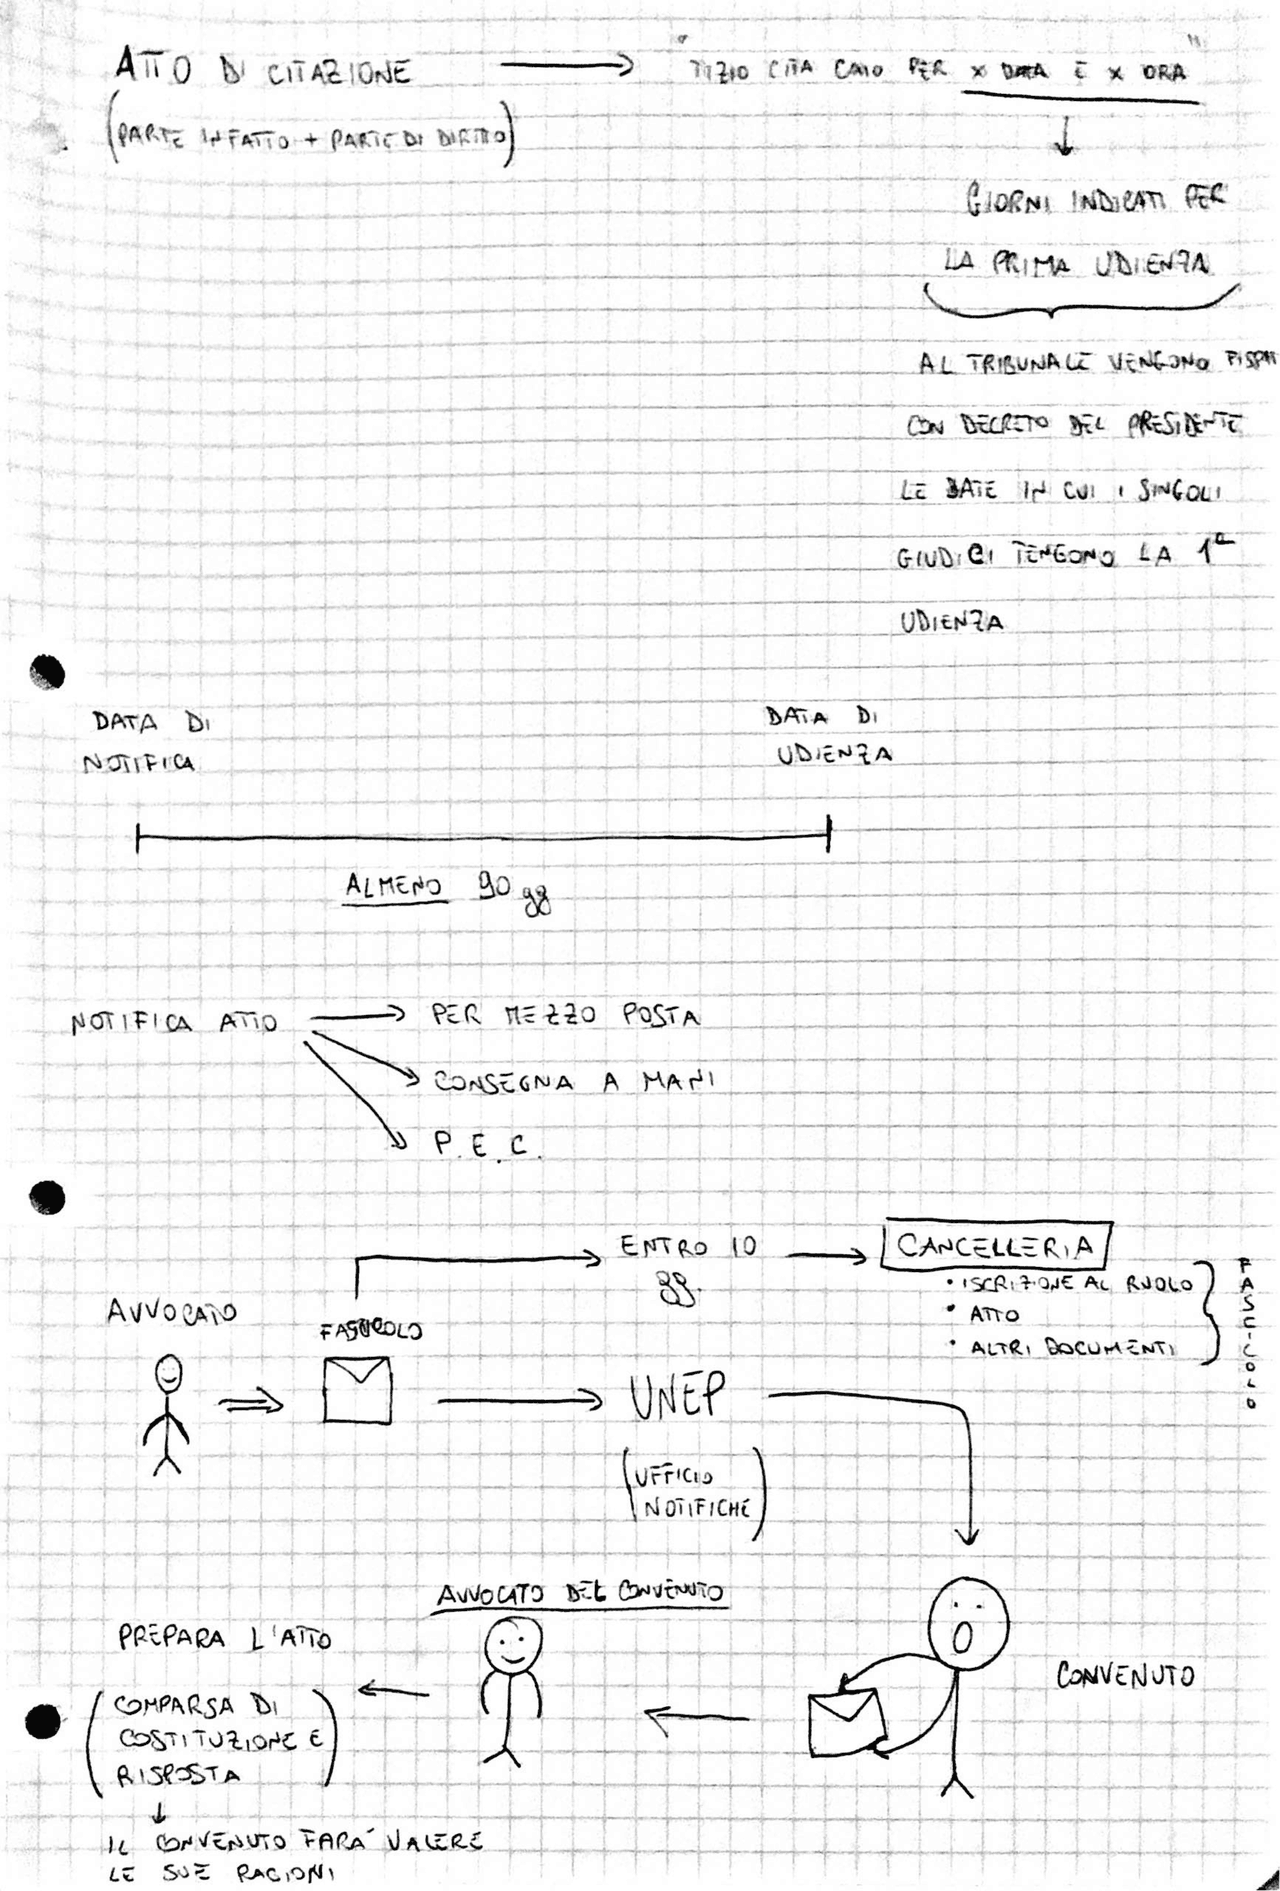 ATTO DI CITAZIONE
"TIZIO CITA CAIO PER x DATA E x ORA"
(PARTE IN FATTO + PARTE DI DIRITTO)
GIORNI INDICATI PER
LA PRIMA UDIENZA
AL TRIBUNALE VENGONO
CON DECRETO DEL PRESIDENTE
LE DATE IN CUI I SINGOLI
GIUDICI TENGONO LA 1ª
UDIENZA
DATA DI
NOTIFICA
DATA DI
UDIENZA
ALMENO 90 gg
NOTIFICA ATTO
PER MEZZO POSTA
CONSEGNA A MANI
P.E.C.
ENTRO 10
gg.
CANCELLERIA
• ISCRIZIONE AL RUOLO
• ATTO
• ALTRI DOCUMENTI
FASCICOLO
AVVOCATO
FASCICOLO
UNEP
(UFFICIO
NOTIFICHE)
AVVOCATO DEL CONVENUTO
CONVENUTO
PREPARA L'ATTO
(COMPARSA DI
COSTITUZIONE E
RISPOSTA)
IL CONVENUTO FARA' VALERE
LE SUE RAGIONI